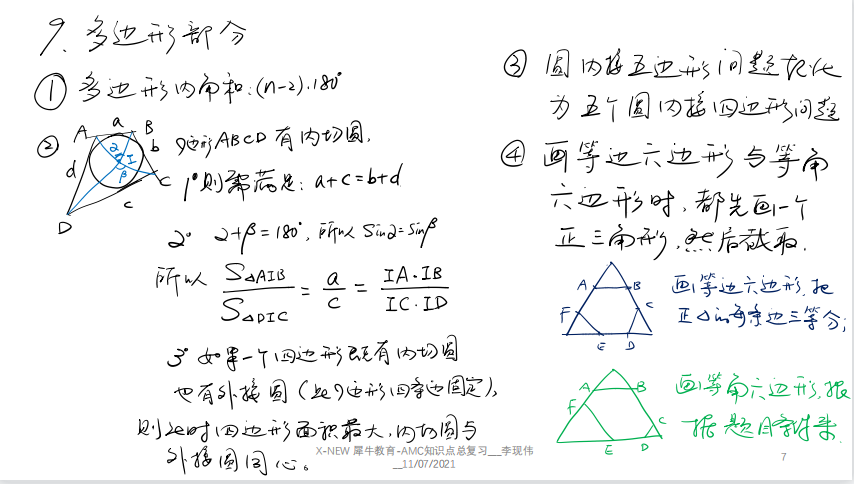 9、多边形部分
① 多边形内角和:(n-2)·180°
② A a B b C c D d I α β
四边形ABCD有内切圆,
1° 则需满足: a+c=b+d
2° α+β=180°, 所以 Sinα=Sinβ
所以 S△AIB / S△DIC = a / c = IA·IB / IC·ID
3° 如果一个四边形既有内切圆
也有外接圆(此四边形四条边固定),
则此时四边形面积最大,内切圆与
外接圆同心。
③ 圆内接五边形问题转化
为五个圆内接四边形问题
④ 画等边六边形与等角
六边形时,都先画一个
正三角形,然后截取.
A B C D E F
画等边六边形,把
正△的每条边三等分;
A B C D E F
画等角六边形,根
据题目条件来.
X-NEW 犀牛教育-AMC知识点总复习__李现伟
__11/07/2021
7